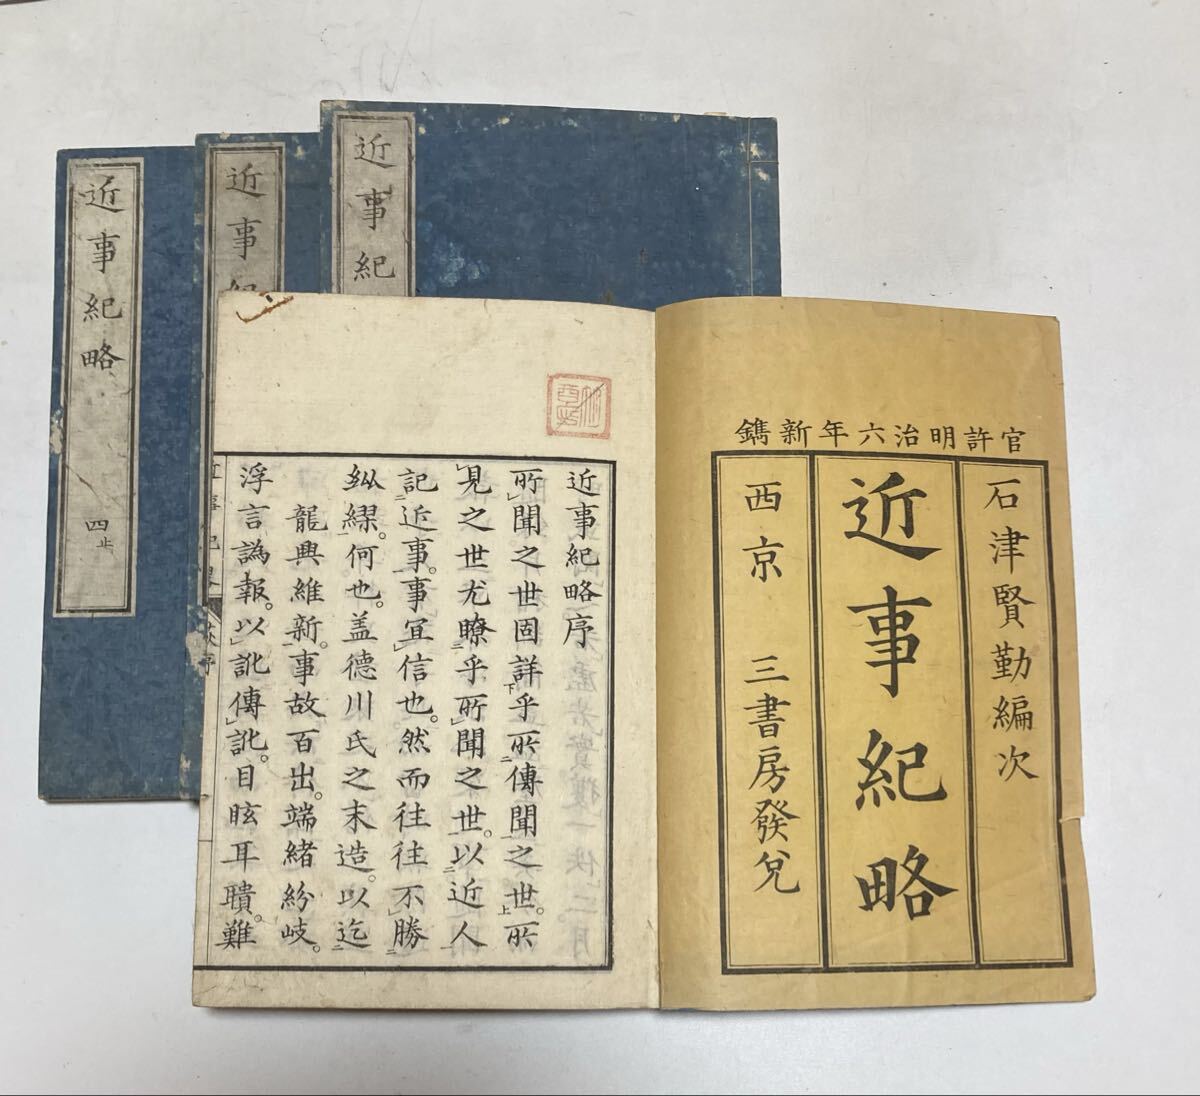 近事紀略
四止
近事紀
近事紀
官許明治六年新鐫
石津賢勤編次
近事紀略
西京 三書房發兌
近事紀略序
所聞之世固詳乎所傳聞之世。所
見之世尤瞭乎所聞之世。以近人
記近事。事宜信也。然而往往不勝
紕繆。何也。盖德川氏之末造。以迄
龍興維新。事故百出。端緒紛岐。
浮言譌報。以訛傳訛。目眩耳聵。難